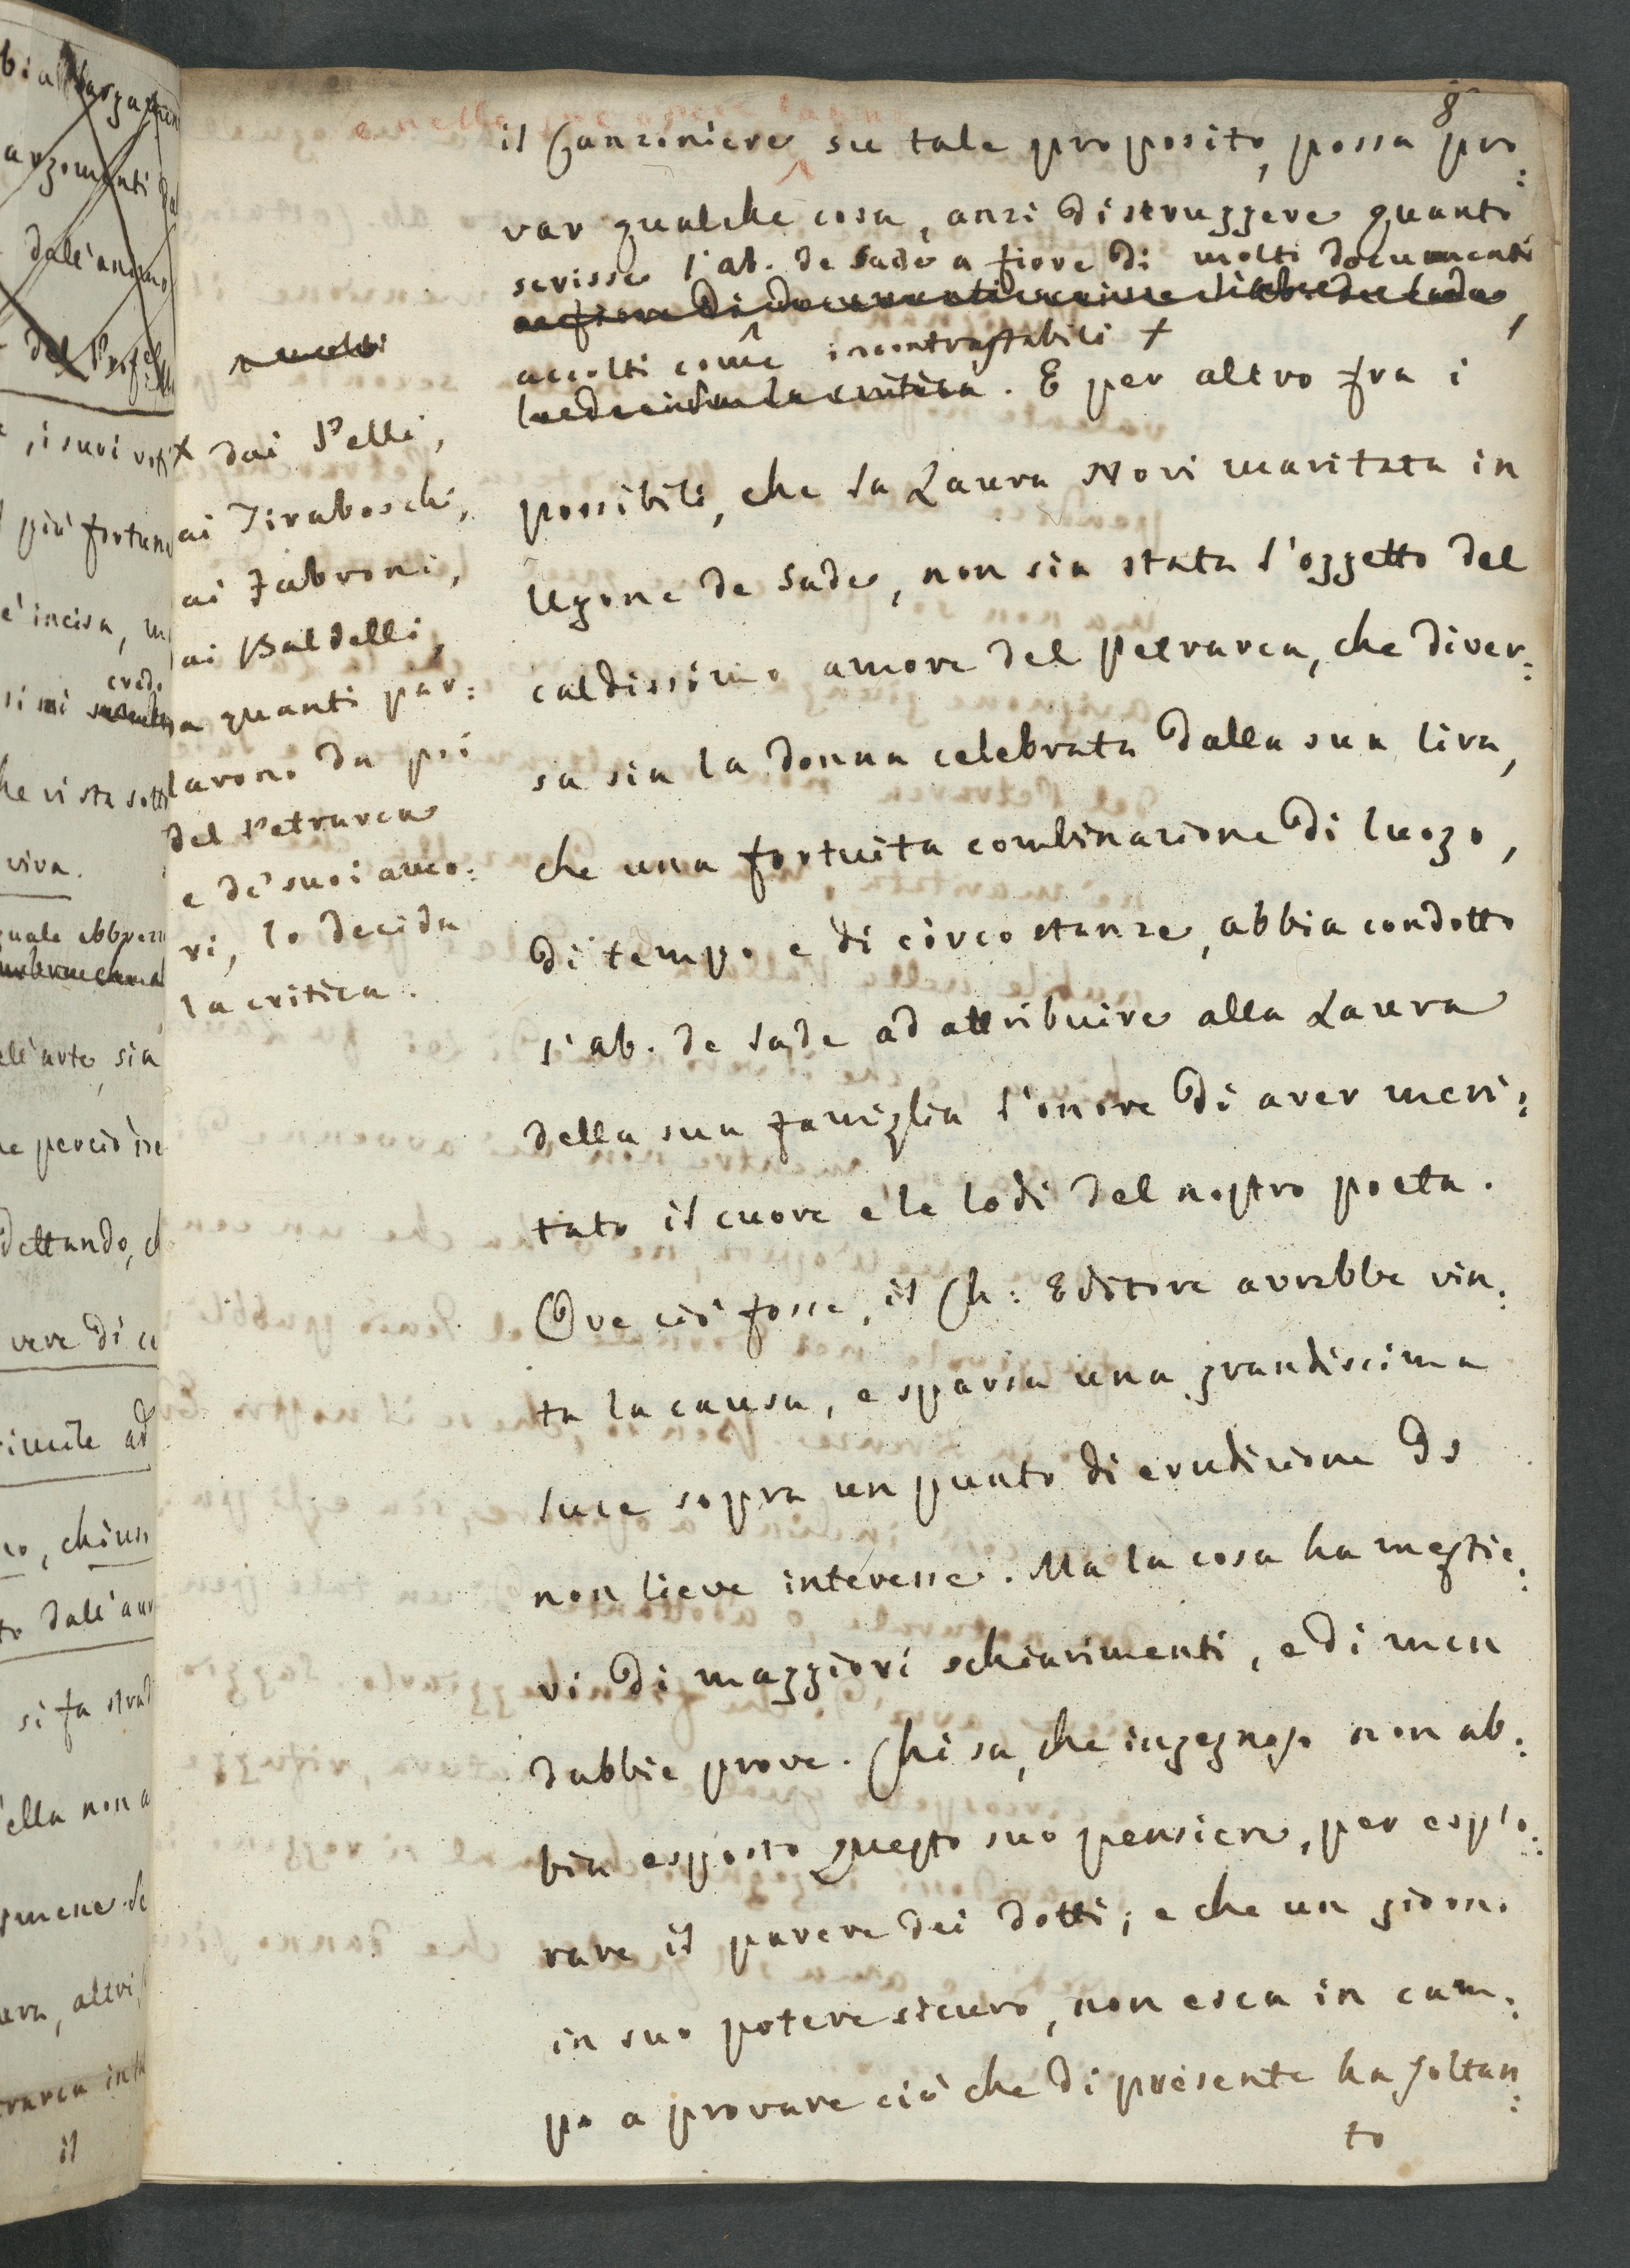 8
e nelle sue opere latine
il Canzoniere su tale proposito, possa pro:
var qualche cosa, anzi distruggere quanto
scrisse l'ab. de Sade a fiore di molti documenti
a fiore di documenti scrisse l'ab. de Sade,
accolti come incontrastabili +
lo decida la critica. E per altro fra i
possibili, che la Laura Novi maritata in
Ugone de Sade, non sia stata l'oggetto del
caldissimo amore del Petrarca, che diver:
sa sia la donna celebrata dalla sua lira,
che una fortuita combinazione di luogo,
di tempo e di circostanze, abbia condotto
l'ab. de Sade ad attribuire alla Laura
della sua famiglia l'onore di aver meri:
tato il cuore e le lodi del nostro poeta.
Ove ciò fosse, il Ch: Editore avrebbe vin:
ta la causa, e sparsa una grandissima
luce sopra un punto di erudizione di
non lieve interesse. Ma la cosa ha mestie:
ri di maggiori schiarimenti, e di men
dubbie prove. Chi sa, che ingegnoso non ab:
bia esposto questo suo pensiero, per esplo:
rare il parere dei dotti; e che un giorno
in suo potere sicuro, non esca in cam:
po a provare ciò che di presente ha soltan:
to
x dai Pelli,
ai Tiraboschi,
ai Fabroni,
ai Baldelli,
a quanti par:
larono da poi
del Petrarca
e de' suoi amo:
ri, lo decida
la critica.
argomenti
dall'animo
del
i suoi
più fortuna
è incisa,
credo
si mi
viva.
quale
ell'arte, sia
perciò
dettando,
vere di
ad
dall'
si fa
ella non
il